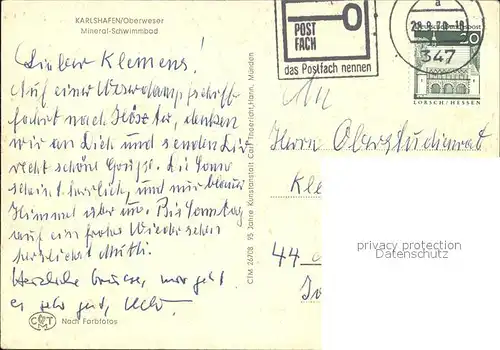 KARLSHAFEN/Oberweser
Mineral-Schwimmbad
Lieber Klemens!
Auf einer Weserdampfschiff-
fahrt nach Höxter, denken
wir an Dich und senden Dir
recht schöne Grüße. Die Sonne
scheint herrlich, und nur blauer
Himmel über uns. Bis Sonntag
auf ein frohes Wiedersehen
herzlichst Mutti.
Herzliche Grüsse, mir geht
es sehr gut,
Nach Farbfotos
CTM 26708 95 Jahre Kunstanstalt Carl Thoericht, Hann. Münden
POST
FACH
das Postfach nennen
347
30
LORSCH/HESSEN
An
Herrn Oberstudienrat
Kle
44
privacy protection
Datenschutz